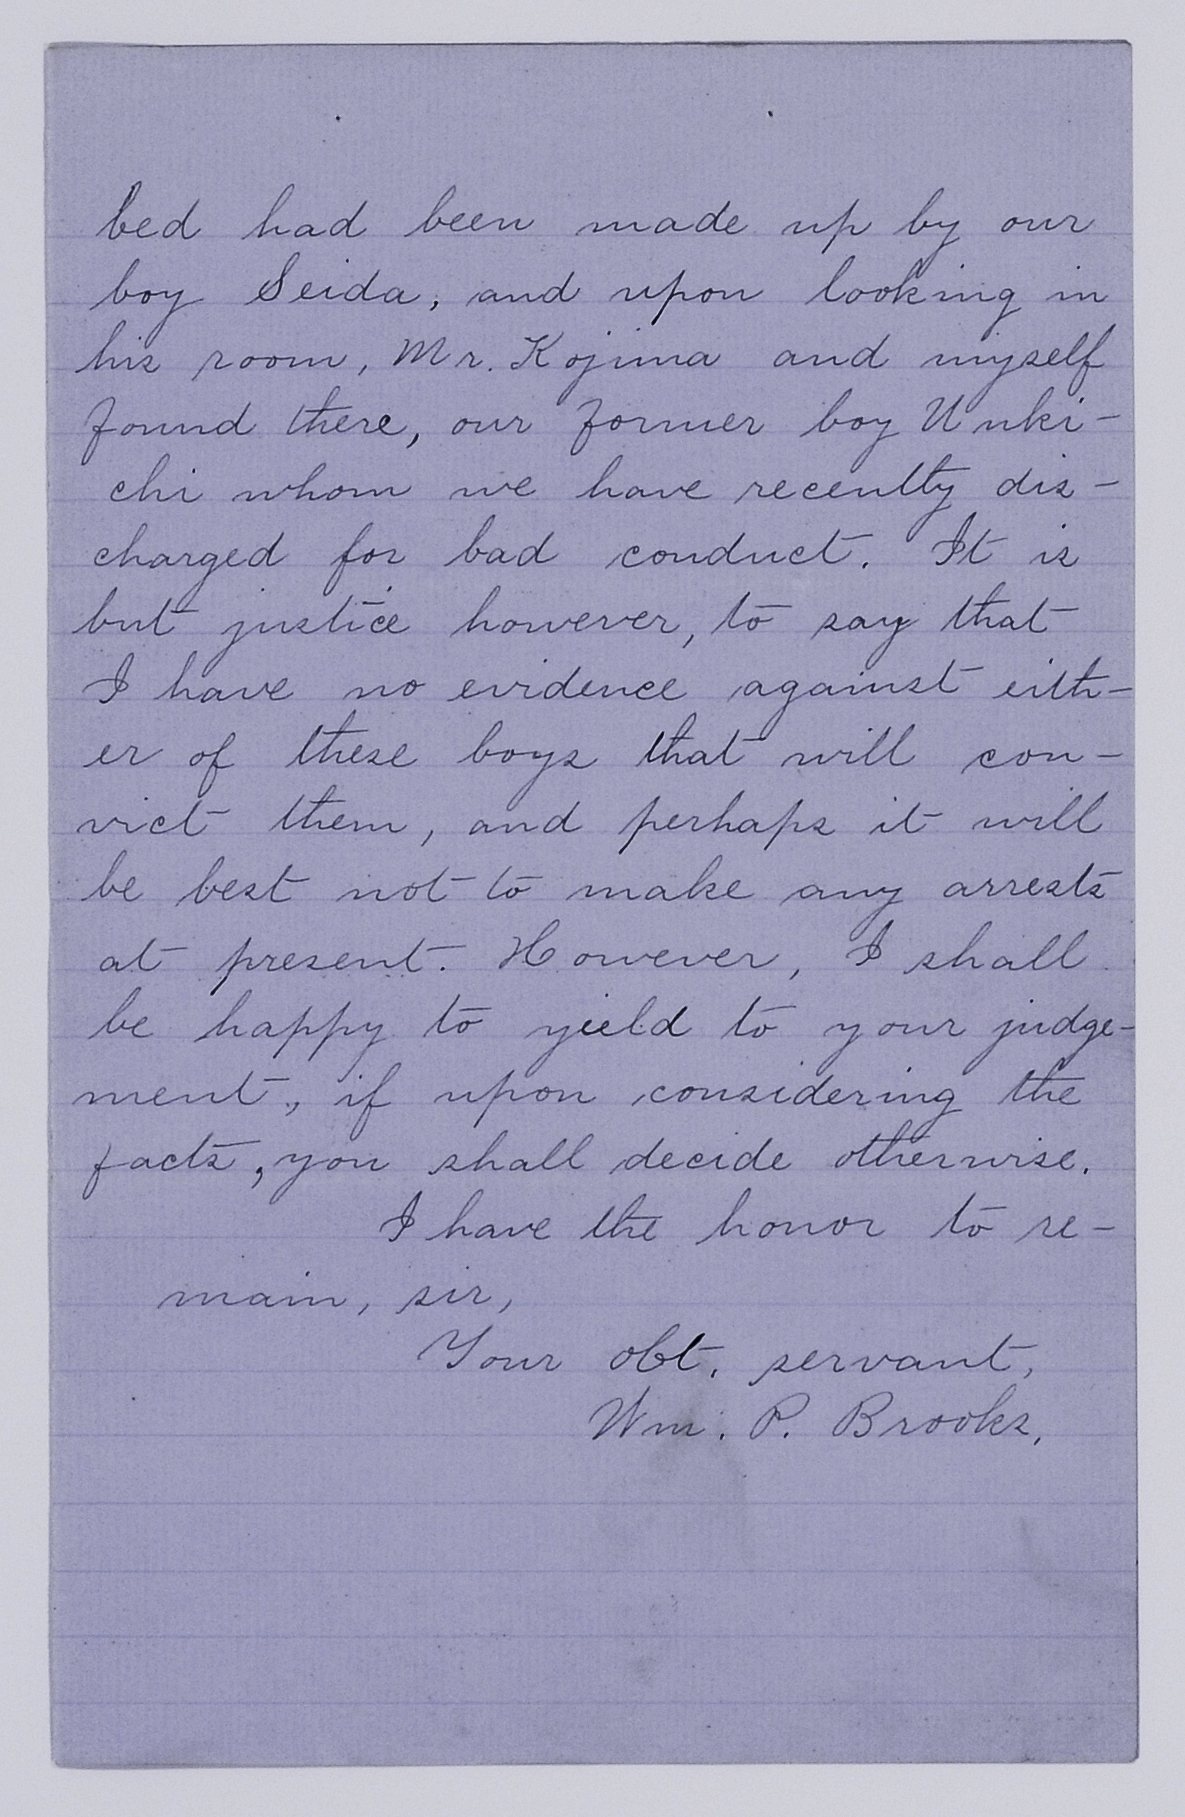 bed had been made up by our
boy Seida, and upon looking in
his room, Mr. Kojima and myself
found there, our former boy Unki-
chi whom we have recently dis-
charged for bad conduct. It is
but justice however, to say that
I have no evidence against eith-
er of these boys that will con-
vict them, and perhaps it will
be best not to make any arrests
at present. However, I shall
be happy to yield to your judge-
ment, if upon considering the
facts, you shall decide otherwise.
I have the honor to re-
main, sir,
Your obt. servant,
Wm. P. Brooks.